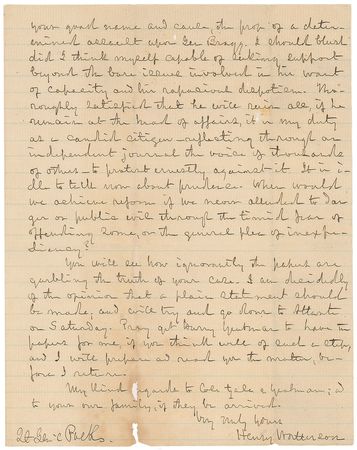 your great name and cause, the prop of a deter-
mined assault upon Gen Bragg. I should blush
did I think myself capable of seeking support
beyond the bare issue involved in his want
of capacity and his rapacious despotism. Tho-
roughly satisfied that he will ruin all, if he
remain at the head of affairs, it is my duty
as a candid citizen—reflecting through an
independent journal the voice of thousands
of others—to protest earnestly against it. It is i-
dle to tell now about prudence. When would
we achieve reform if we never alluded to dan-
ger or public evil through the timid fear of
offending some, or the general plea of inexpe-
diency?
You will see how ignorantly the papers are
garbling the truth of your case. I am decidedly
of the opinion that a plain statement should
be made, and will try and go down to Atlant
or Saturday. Pray get Harry Yeatman to have the
papers for me, if you think well of such a step,
and I will prepare and read you the matter, be-
fore I return.
My kind regards to Cols Gale & Yeatman; &
to your own family, if they be arrived.
Very truly yours
Henry Watterson
Lt Gen'l Polk.